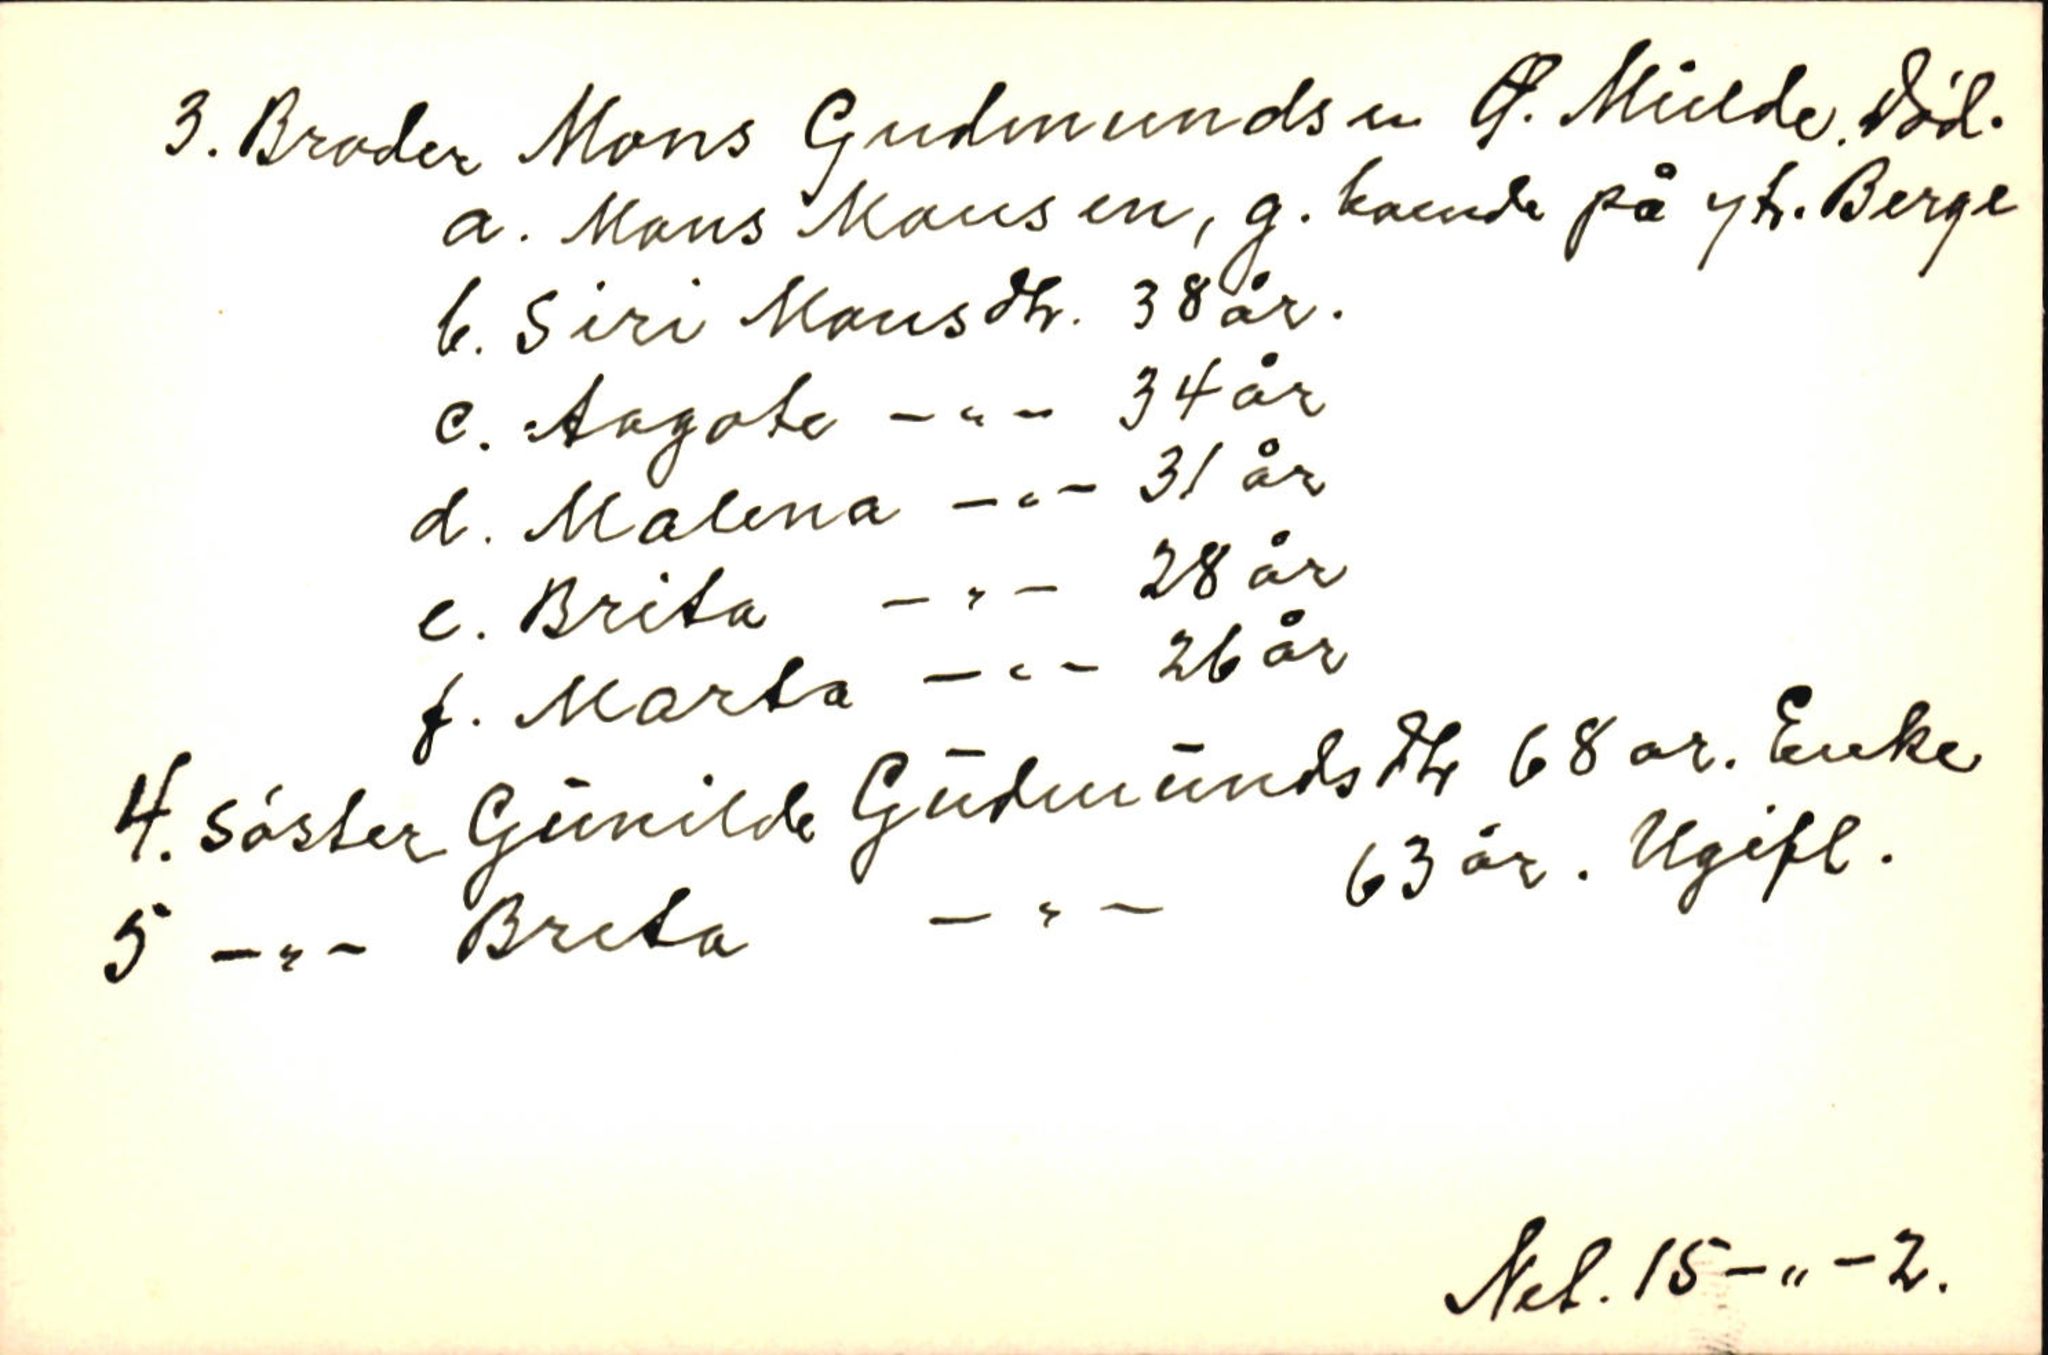 3. Broder Mons Gudmundsen Ø. Milde. Död.
a. Mons Monsen, g. boende på ytr. Berge
b. Siri Monsdtr. 38 år.
c. Aagote -"- 34 år
d. Malena -"- 31 år
e. Brita -"- 28 år
f. Marta -"- 26 år
4. Söster Gunilde Gudmundsdtr 68 ar. Enke
5 -"- Brita -"- 63 år. Ugift.
Net. 15-"-2.